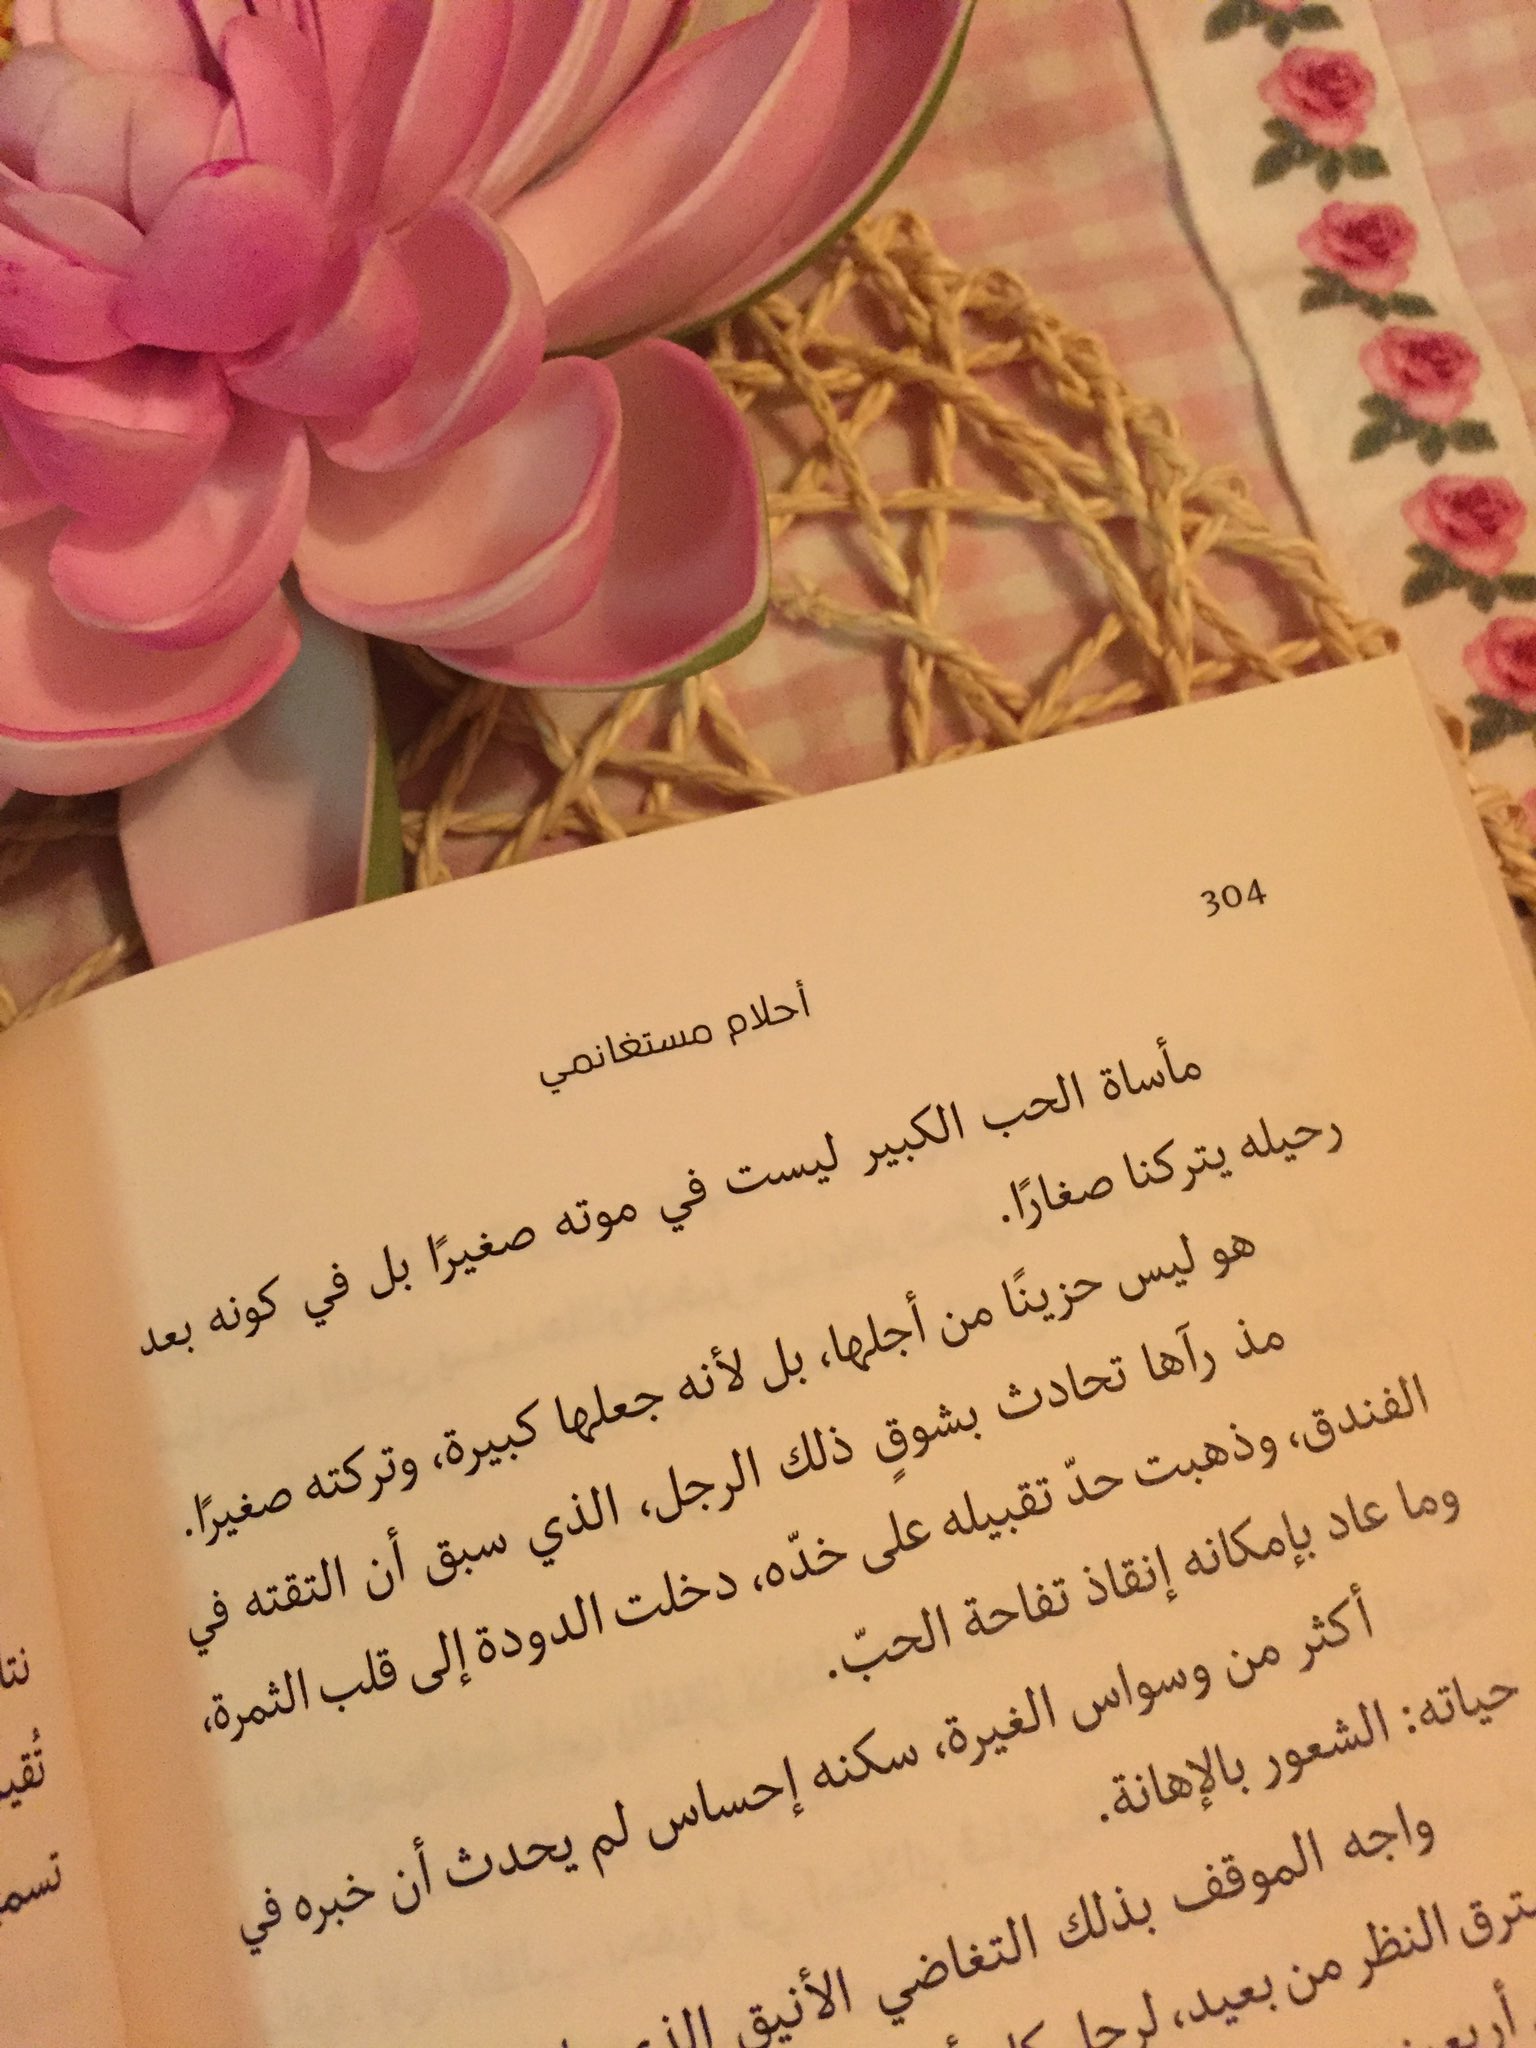 304
أحلام مستغانمي
مأساة الحب الكبير ليست في موته صغيرًا بل في كونه بعد
رحيله يتركنا صغارًا.
هو ليس حزينًا من أجلها، بل لأنه جعلها كبيرة، وتركته صغيرًا.
مذ رآها تحادث بشوقٍ ذلك الرجل، الذي سبق أن التقته في
الفندق، وذهبت حدّ تقبيله على خدّه، دخلت الدودة إلى قلب الثمرة،
وما عاد بإمكانه إنقاذ تفاحة الحبّ.
أكثر من وسواس الغيرة، سكنه إحساس لم يحدث أن خبره في
حياته: الشعور بالإهانة.
واجه الموقف بذلك التغاضي الأنيق الذي
النظر من بعيد، لرجل